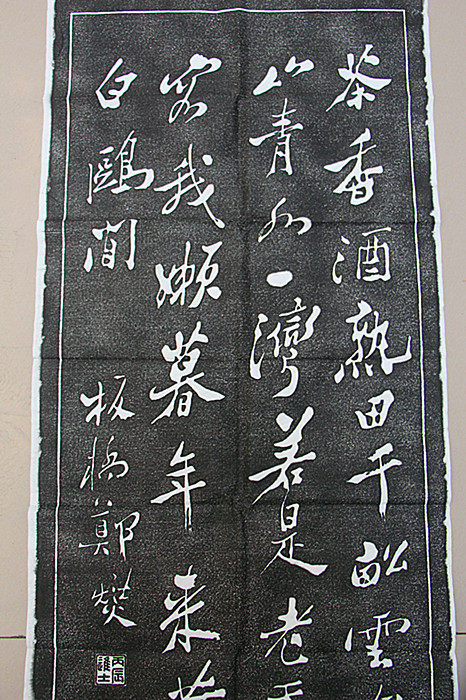 茶香酒熟田千畝雲
山青水一灣若是老
容我懶暮年來
白鷗閒
板橋鄭燮
丙辰進士